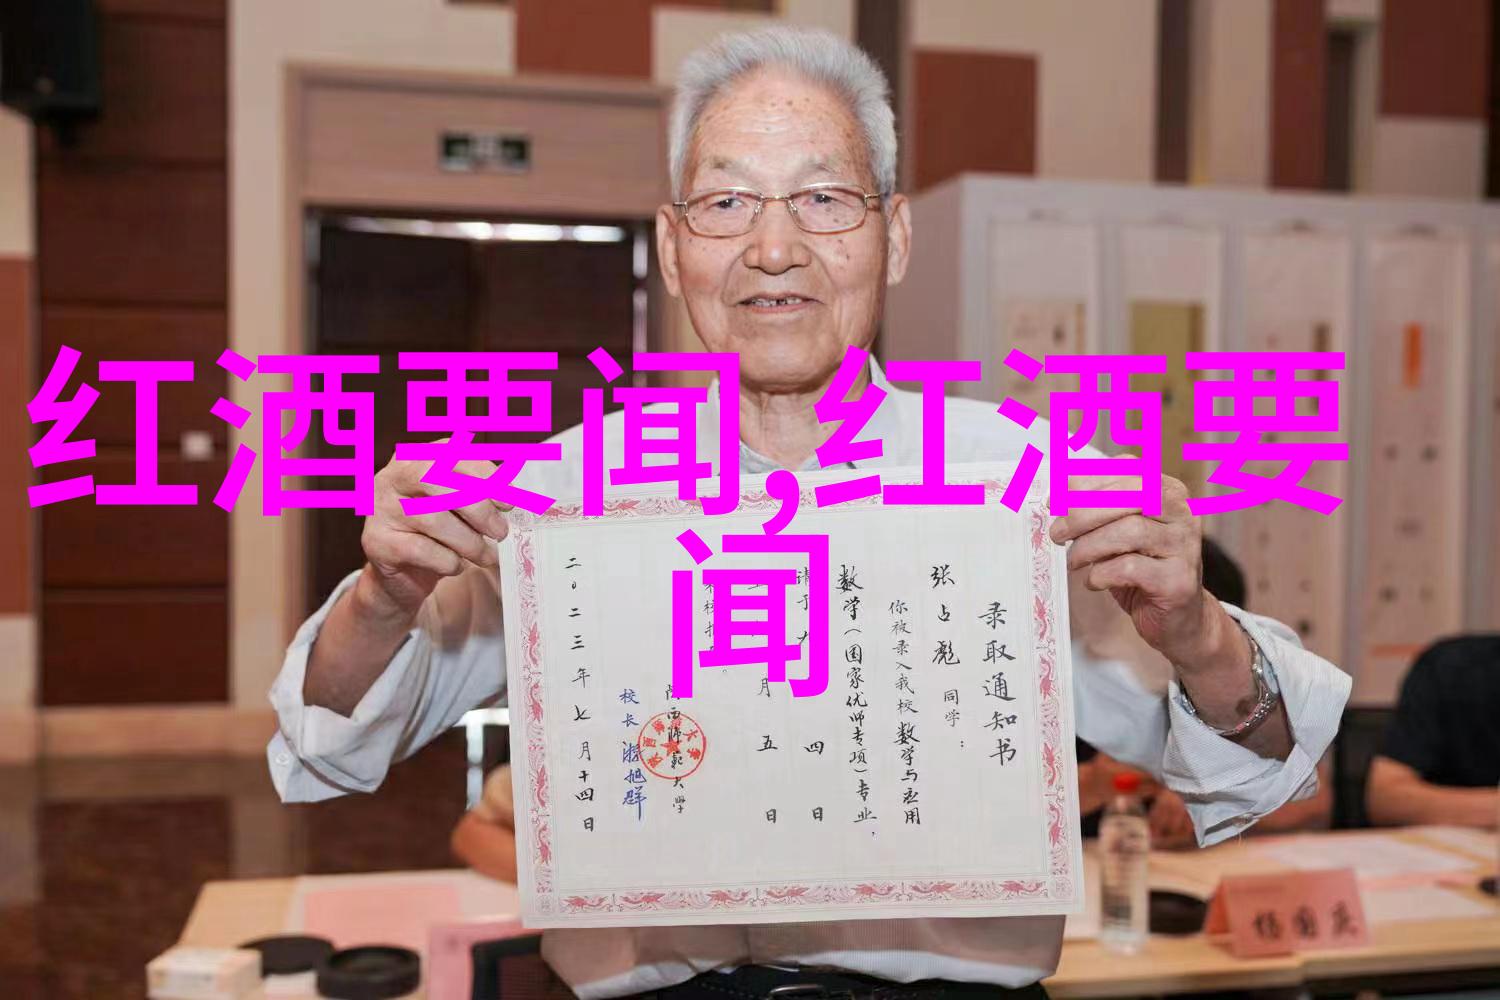 红酒要闻,红酒要
闻
录取通知书
张占彪 同学：
你被录入我校数学与应用
数学（国家优师专项）专业，
请于
四日
月五日
陕西师范大学
校长 游旭群
二〇二三年七月十四日
杨国庆